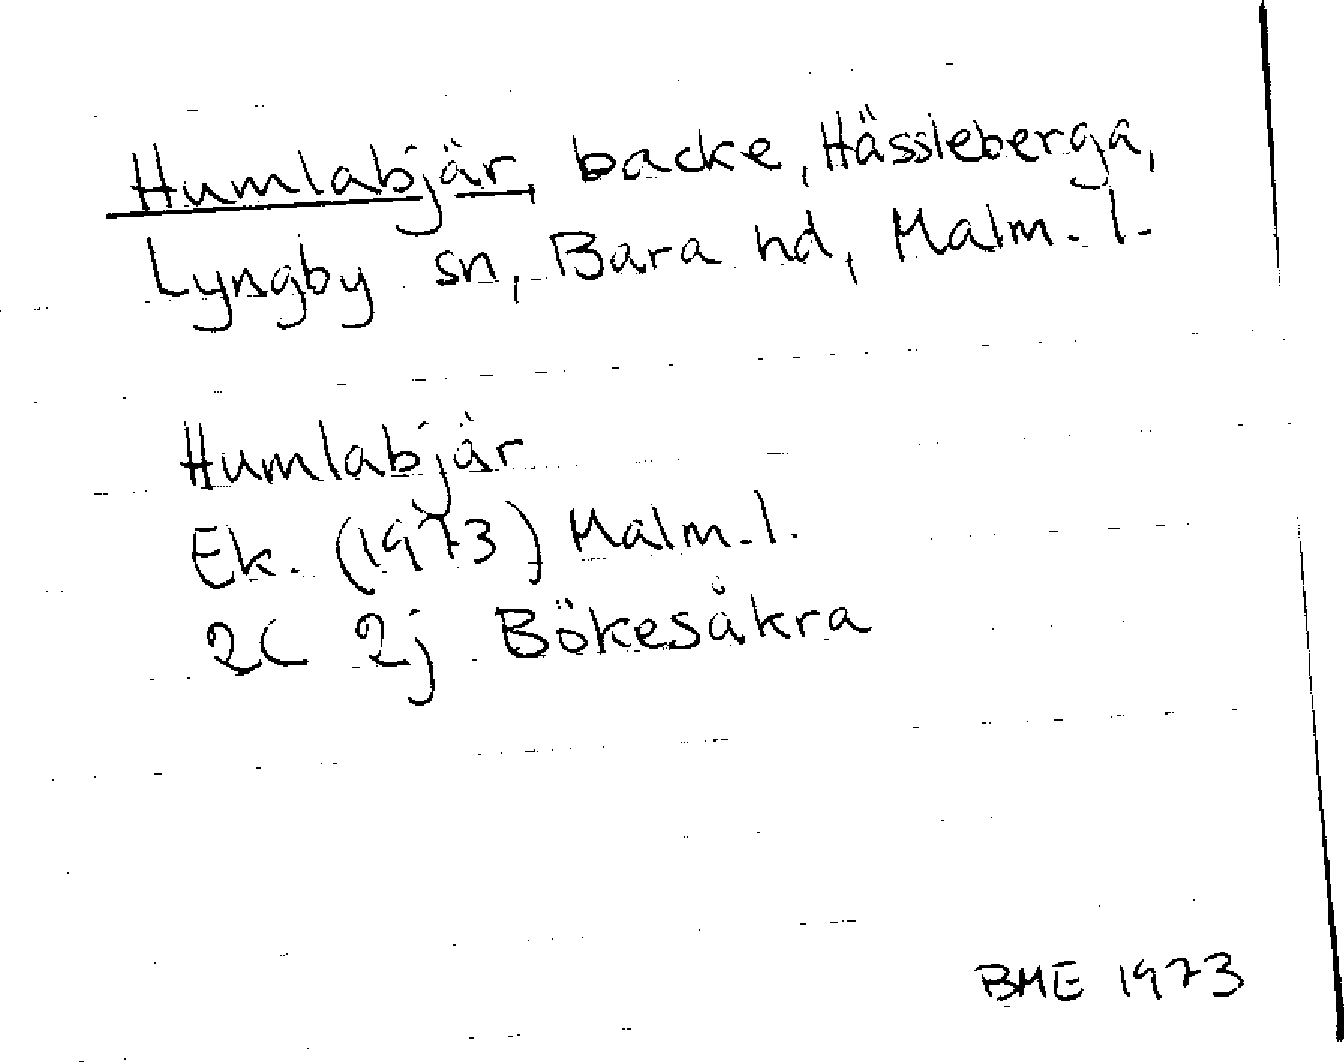 Humlabjär, backe, Hässleberga,
Lyngby sn, Bara hd, Malm. l.
Humlabjär
Ek. (1973) Malm. l.
2C 2j Bökesåkra
BME 1973